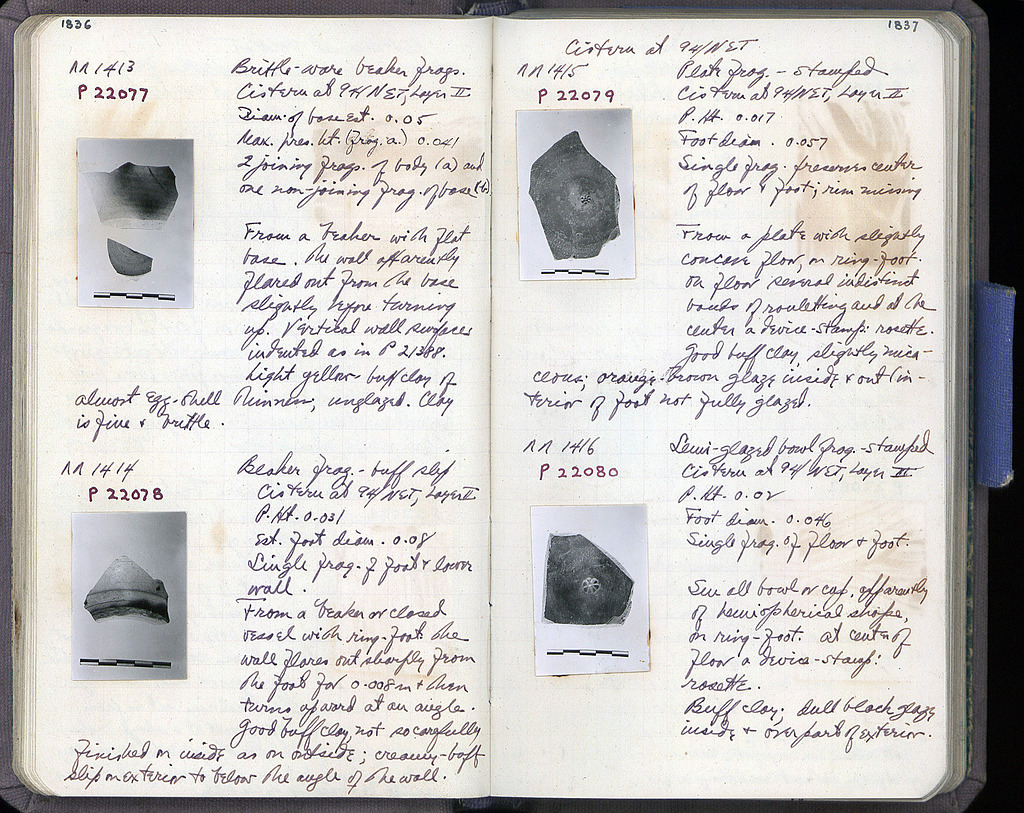 1836
ΛΛ 1413
P 22077
Brittle-ware beaker frags.
Cistern at 94/ΝΣΤ, Layer II
Diam. of base est. 0.05
Max. pres. ht. (frag. a.) 0.041
2 joining frags. of body (a) and
one non-joining frag. of base (b)
From a beaker with flat
base. The wall apparently
flared out from the base
slightly before turning
up. Vertical wall surfaces
indented as in P 21388.
Light yellow-buff clay of
almost egg-shell thinness, unglazed. Clay
is fine & brittle.
ΛΛ 1414
P 22078
Beaker frag. - buff slip
Cistern at 94/ΝΣΤ, Layer II
P. Ht. 0.031
Est. foot diam. 0.08
Single frag. of foot & lower
wall.
From a beaker or closed
vessel with ring-foot. The
wall flares out sharply from
the foot for 0.008 m & then
turns upward at an angle.
Good buff clay, not so carefully
finished on inside as on outside; creamy-buff
slip on exterior to below the angle of the wall.
1837
Cistern at 94/ΝΣΤ
ΛΛ 1415
P 22079
Plate frag. - stamped
Cistern at 94/ΝΣΤ, Layer II
P. Ht. 0.017
Foot diam. 0.057
Single frag. preserves center
of floor & foot; rim missing
From a plate with slightly
concave floor, on ring-foot.
On floor several indistinct
bands of rouletting and at the
center a device-stamp: rosette.
Good buff clay, slightly mica-
ceous; orange-brown glaze inside & out (in-
terior of foot not fully glazed.
ΛΛ 1416
P 22080
Semi-glazed bowl frag. - stamped
Cistern at 94/ΝΣΤ, Layer II
P. Ht. 0.02
Foot diam. 0.046
Single frag. of floor & foot.
Small bowl or cup, apparently
of hemispherical shape,
on ring-foot. At center of
floor a device-stamp:
rosette.
Buff clay; dull black glaze
inside & over part of exterior.